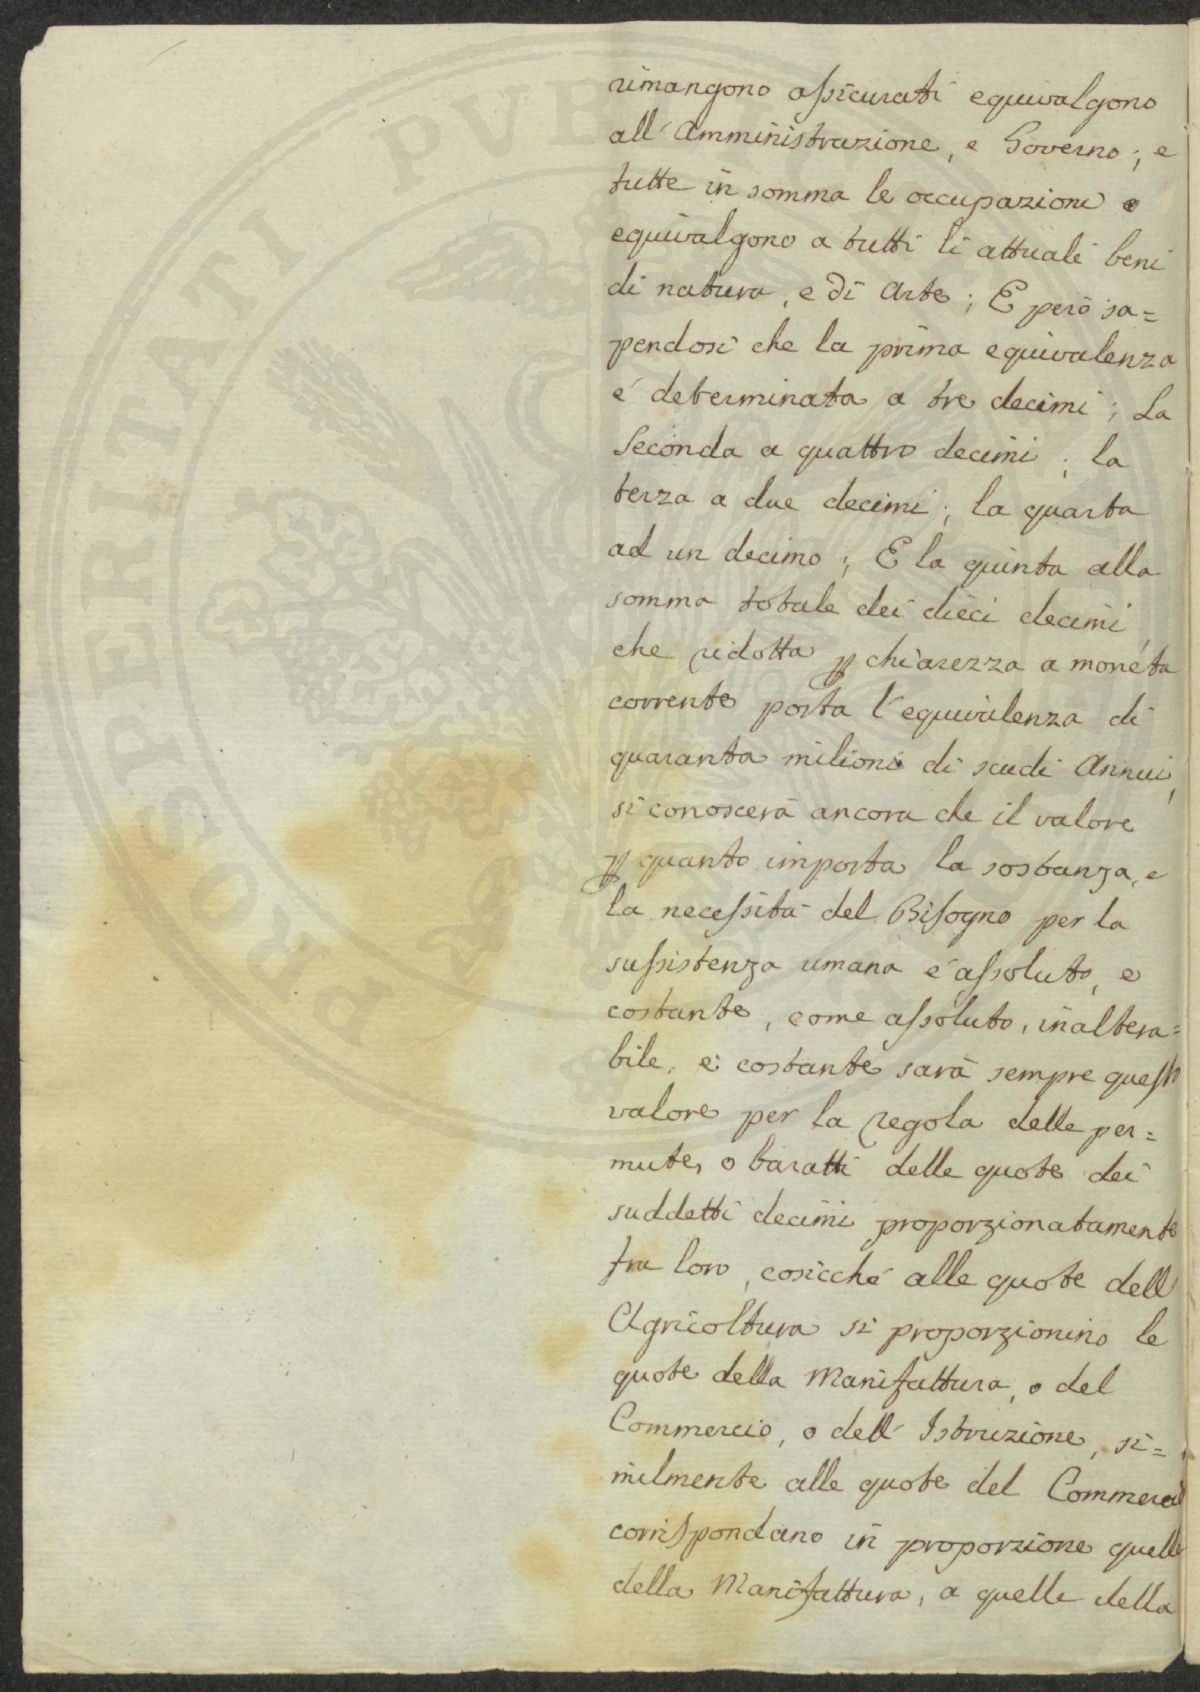 rimangono assicurati equivalgono
all'Amministrazione, e Governo; e
tutte in somma le occupazioni
equivalgono a tutti li attuali beni
di natura, e di Arte; E però sa=
pendosi che la prima equivalenza
é determinata a tre decimi; La
Seconda a quattro decimi; la
terza a due decimi; la quarta
ad un decimo; E la quinta alla
somma totale dei dieci decimi,
che ridotta p chiarezza a monéta
corrente porta l'equivalenza di
quaranta milioni di scudi Annui,
si conoscerà ancora che il valore
p quanto importa la sostanza, e
la necessità del Bisogno per la
sussistenza umana é assoluto, e
costante, come assoluto, inaltera=
bile, e costante sarà sempre questo
valore per la regola delle per=
mute, o baratti delle quote dei
suddetti decimi proporzionatamente
fra loro, cosicché alle quote dell'
Agricoltura si proporzionino le
quote della Manifattura, o del
Commercio, o dell'Istruzione, si=
milmente alle quote del Commercio
corrispondano in proporzione quelle
della Manifattura, a quelle della
PVB